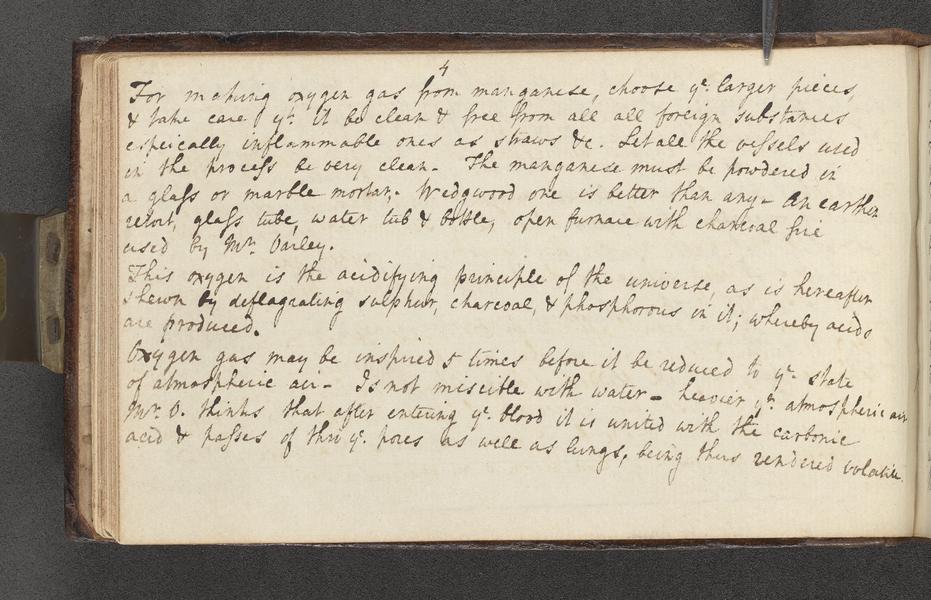 4
For making oxygen gas from manganese, choose ye. larger pieces,
& take care yt. it be clean & free from all all foreign substances
especially inflammable ones as straws &c. Let all the vessels used
in the process be very clean. The manganese must be powdered in
a glass or marble mortar. Wedgwood one is better than any. An earthen
retort, glass tube, water tub & bottle, open furnace with charcoal fire
used by Mr. Oarley.
This oxygen is the acidifying principle of the universe, as is hereafter
shewn by deflagrating sulphur, charcoal, & phosphorous in it; whereby acids
are produced.
Oxygen gas may be inspired 5 times before it be reduced to ye. state
of atmospheric air. Is not miscible with water. heavier yn. atmospheric air
Mr. O. thinks that after entering ye. blood it is united with the carbonic
acid & passes of thro ye. pores as well as lungs, being thus rendered volatile.